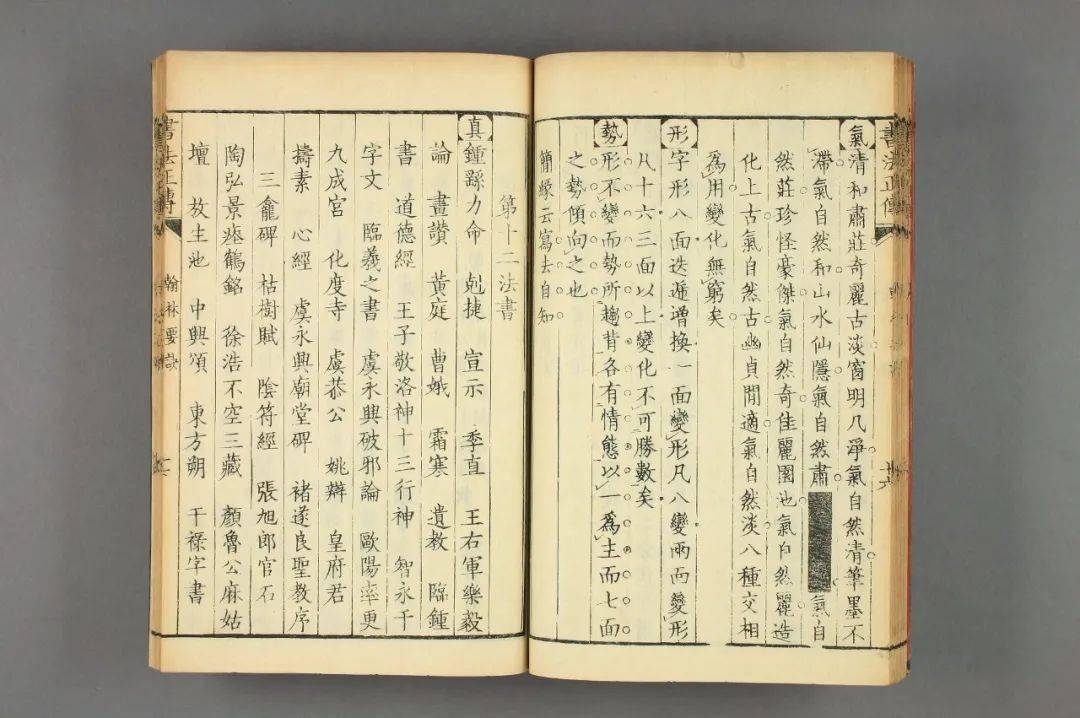 書法正傳
氣清和肅莊奇麗古淡窗明几淨氣自然清筆墨不
滯氣自然和山水仙隱氣自然肅 氣自
然莊珍怪豪傑氣自然奇佳麗園池氣自然麗造
化上古氣自然古幽貞閒適氣自然淡八種交相
為用變化無窮矣
形字形八面迭遞增換一面變形凡八變兩面變形
凡十六三面以上變化不可勝數矣
勢形不變而勢所趨背各有情態以一爲主而七面
之勢傾向之也
簡緣云寫去自知
第十二法書
真鍾繇力命 尅捷 宣示 季直 王右軍樂毅
論 畫讚 黃庭 曹娥 霜寒 遺教 臨鍾
書 道德經 王子敬洛神十三行神 智永千
字文 臨羲之書 虞永興破邪論 歐陽率更
九成宮 化度寺 虞恭公 姚辯 皇府君
擣素 心經 虞永興廟堂碑 褚遂良聖教序
三龕碑 枯樹賦 陰符經 張旭郎官石
陶弘景瘞鶴銘 徐浩不空三藏 顏魯公麻姑
壇 放生池 中興頌 東方朔 干祿字書
書法正傳 翰林要訣